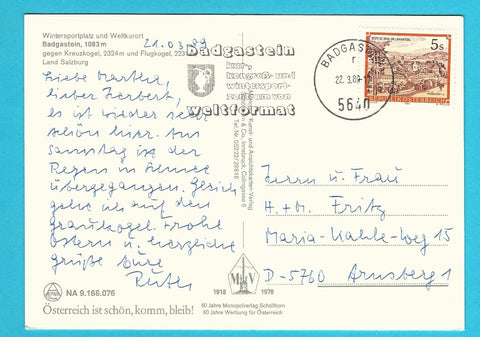 Wintersportplatz und Weltkurort
Badgastein, 1083 m
gegen Kreuzkogel, 2324 m und Flugkogel, 223
Land Salzburg
21.03.89
Liebe Martha,
lieber Herbert,
es ist wieder sehr
schön hier. Am
Samstag ist der
Regen in Schnee
übergegangen.
gehe ich auf den
Graukogel. Frohe
Ostern u. herzliche
Grüße Eure
Ruth
NA 9.166.076
Österreich ist schön, komm, bleib!
Badgastein
kur-,
kongreß- und
wintersport-
zentrum von
weltformat
BADGASTEIN
r
22.3.89
5640
5s
STIFT ST. PAUL IM LAVANTTAL
REPUBLIK ÖSTERREICH
Kunst- und Ansichtskarten-Verlag
& Co., Innsbruck, Colingasse 6
1918 1978
60 Jahre Monopolverlag Schöllhorn
60 Jahre Werbung für Österreich
Herrn u. Frau
H. + M. Fritz
Maria-Kahle-Weg 15
D-5760 Arnsberg 1